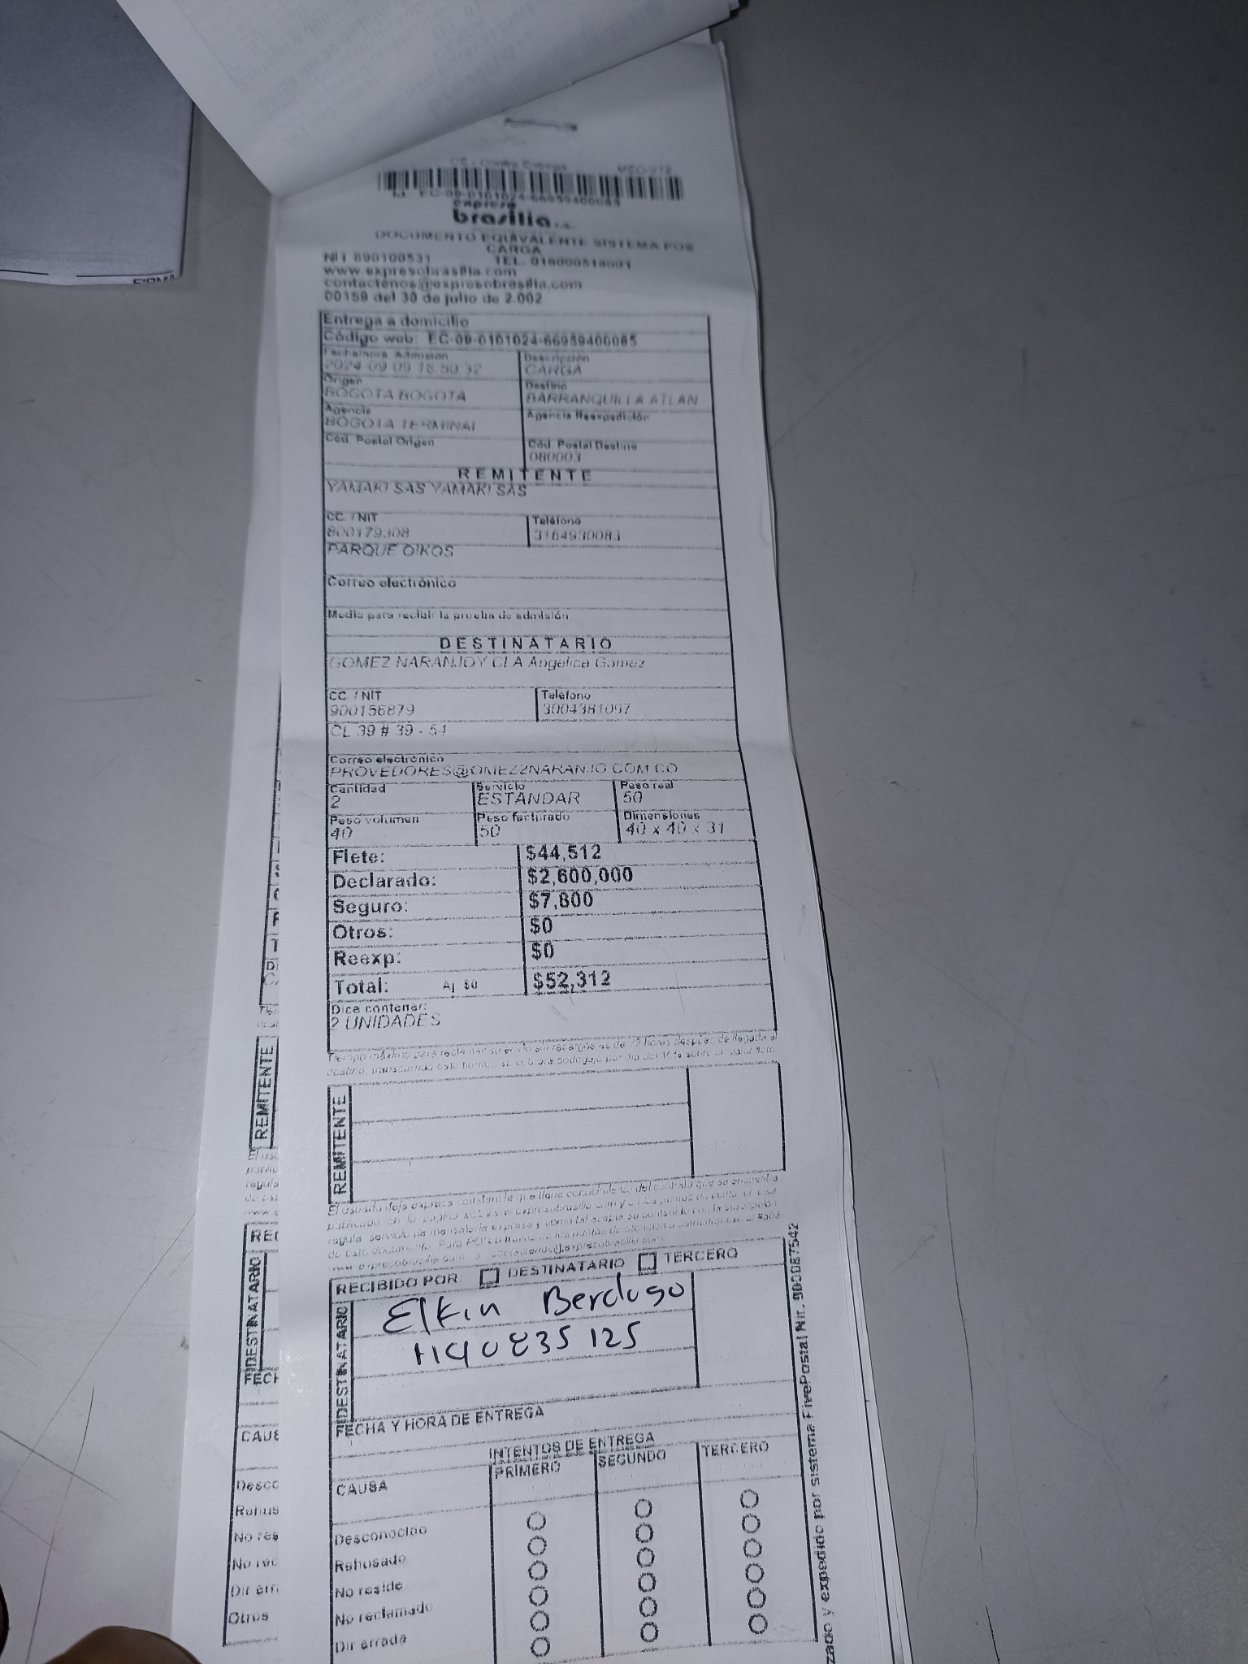 Id. EC-09-0101024-66959400085
expreso
brasilia
DOCUMENTO EQUIVALENTE SISTEMA POS
CARGA
NIT 890100531 TEL. 018000518001
www.expresobrasilia.com
contactenos@expresobrasilia.com
00159 del 30 de julio de 2.002
Entrega a domicilio
Código web: EC-09-0101024-66959400085
Fecha/hora Admisión Descripción
2024 09 09 18:50:32 CARGA
Origen Destino
BOGOTA BOGOTA BARRANQUILLA ATLAN
Agencia Agencia Reexpedición
BOGOTA TERMINAL
Cód. Postal Origen Cód. Postal Destino
080003
REMITENTE
YAMAKI SAS YAMAKI SAS
CC / NIT Teléfono
800179308 3164930083
PARQUE OIKOS
Correo electrónico
Medio para recibir la prueba de admisión
DESTINATARIO
GOMEZ NARANJO Y CI A Angelica Gomez
CC / NIT Teléfono
900156879 3004381097
CL 39 # 39 - 54
Correo electrónico
PROVEDORES@OMEZ2NARANJO COM CO
Cantidad Servicio Peso real
2 ESTANDAR 50
Peso volumen Peso facturado Dimensiones
40 50 40 x 40 x 31
Flete: $44,512
Declarado: $2,600,000
Seguro: $7,800
Otros: $0
Reexp: $0
Total: Aj $0 $52,312
Dice contener:
2 UNIDADES
REMITENTE
RECIBIDO POR DESTINATARIO TERCERO
DESTINATARIO
Elkin Berdugo
835125
FECHA Y HORA DE ENTREGA
INTENTOS DE ENTREGA
CAUSA PRIMERO SEGUNDO TERCERO
Desconocido
Rehusado
No reside
No reclamado
Dir errada
zado y expedido por sistema FivePostal Nit. 900087542
REMITENTE
DESTINATARIO
Otros